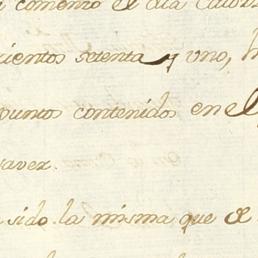 comenzó el dia
cientos setenta y uno,
punto contenidos en el
sido la misma que